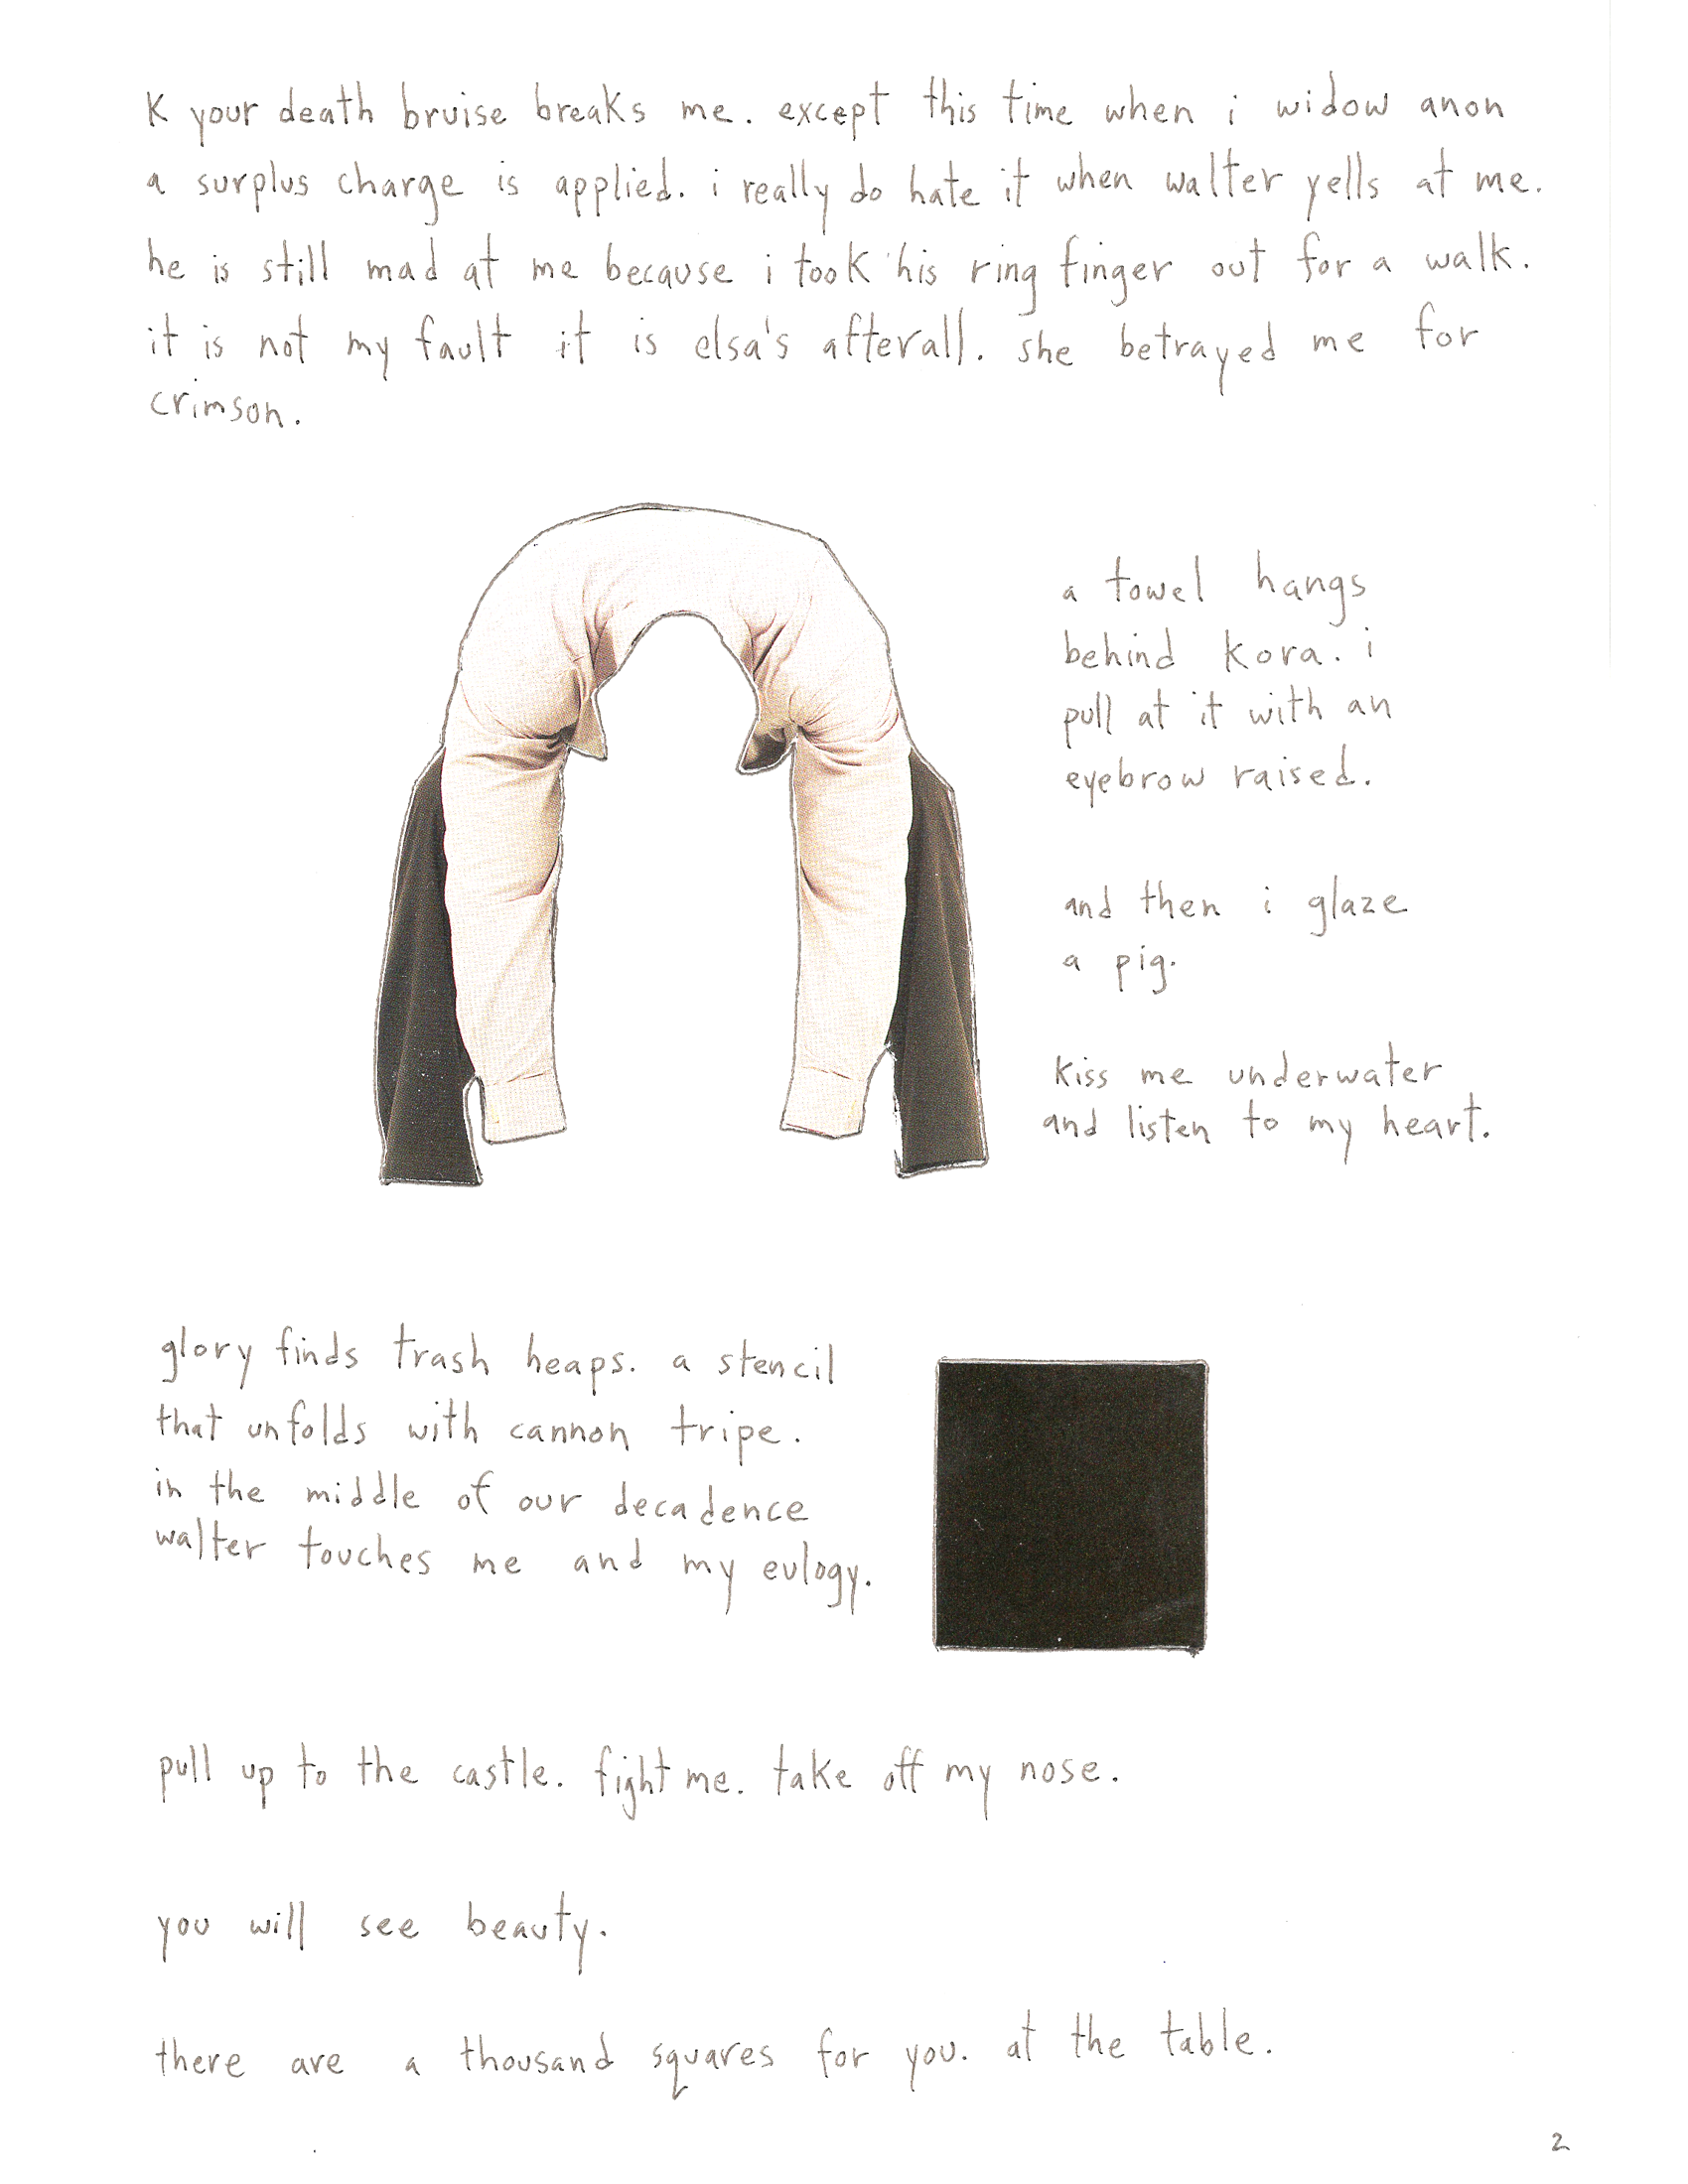 K your death bruise breaks me. except this time when i widow anon
a surplus charge is applied. i really do hate it when walter yells at me.
he is still mad at me because i took his ring finger out for a walk.
it is not my fault it is elsa's afterall. she betrayed me for
crimson.
a towel hangs
behind kora. i
pull at it with an
eyebrow raised.
and then i glaze
a pig.
kiss me underwater
and listen to my heart.
glory finds trash heaps. a stencil
that unfolds with cannon tripe.
in the middle of our decadence
walter touches me and my eulogy.
pull up to the castle. fight me. take off my nose.
you will see beauty.
there are a thousand squares for you. at the table.
2